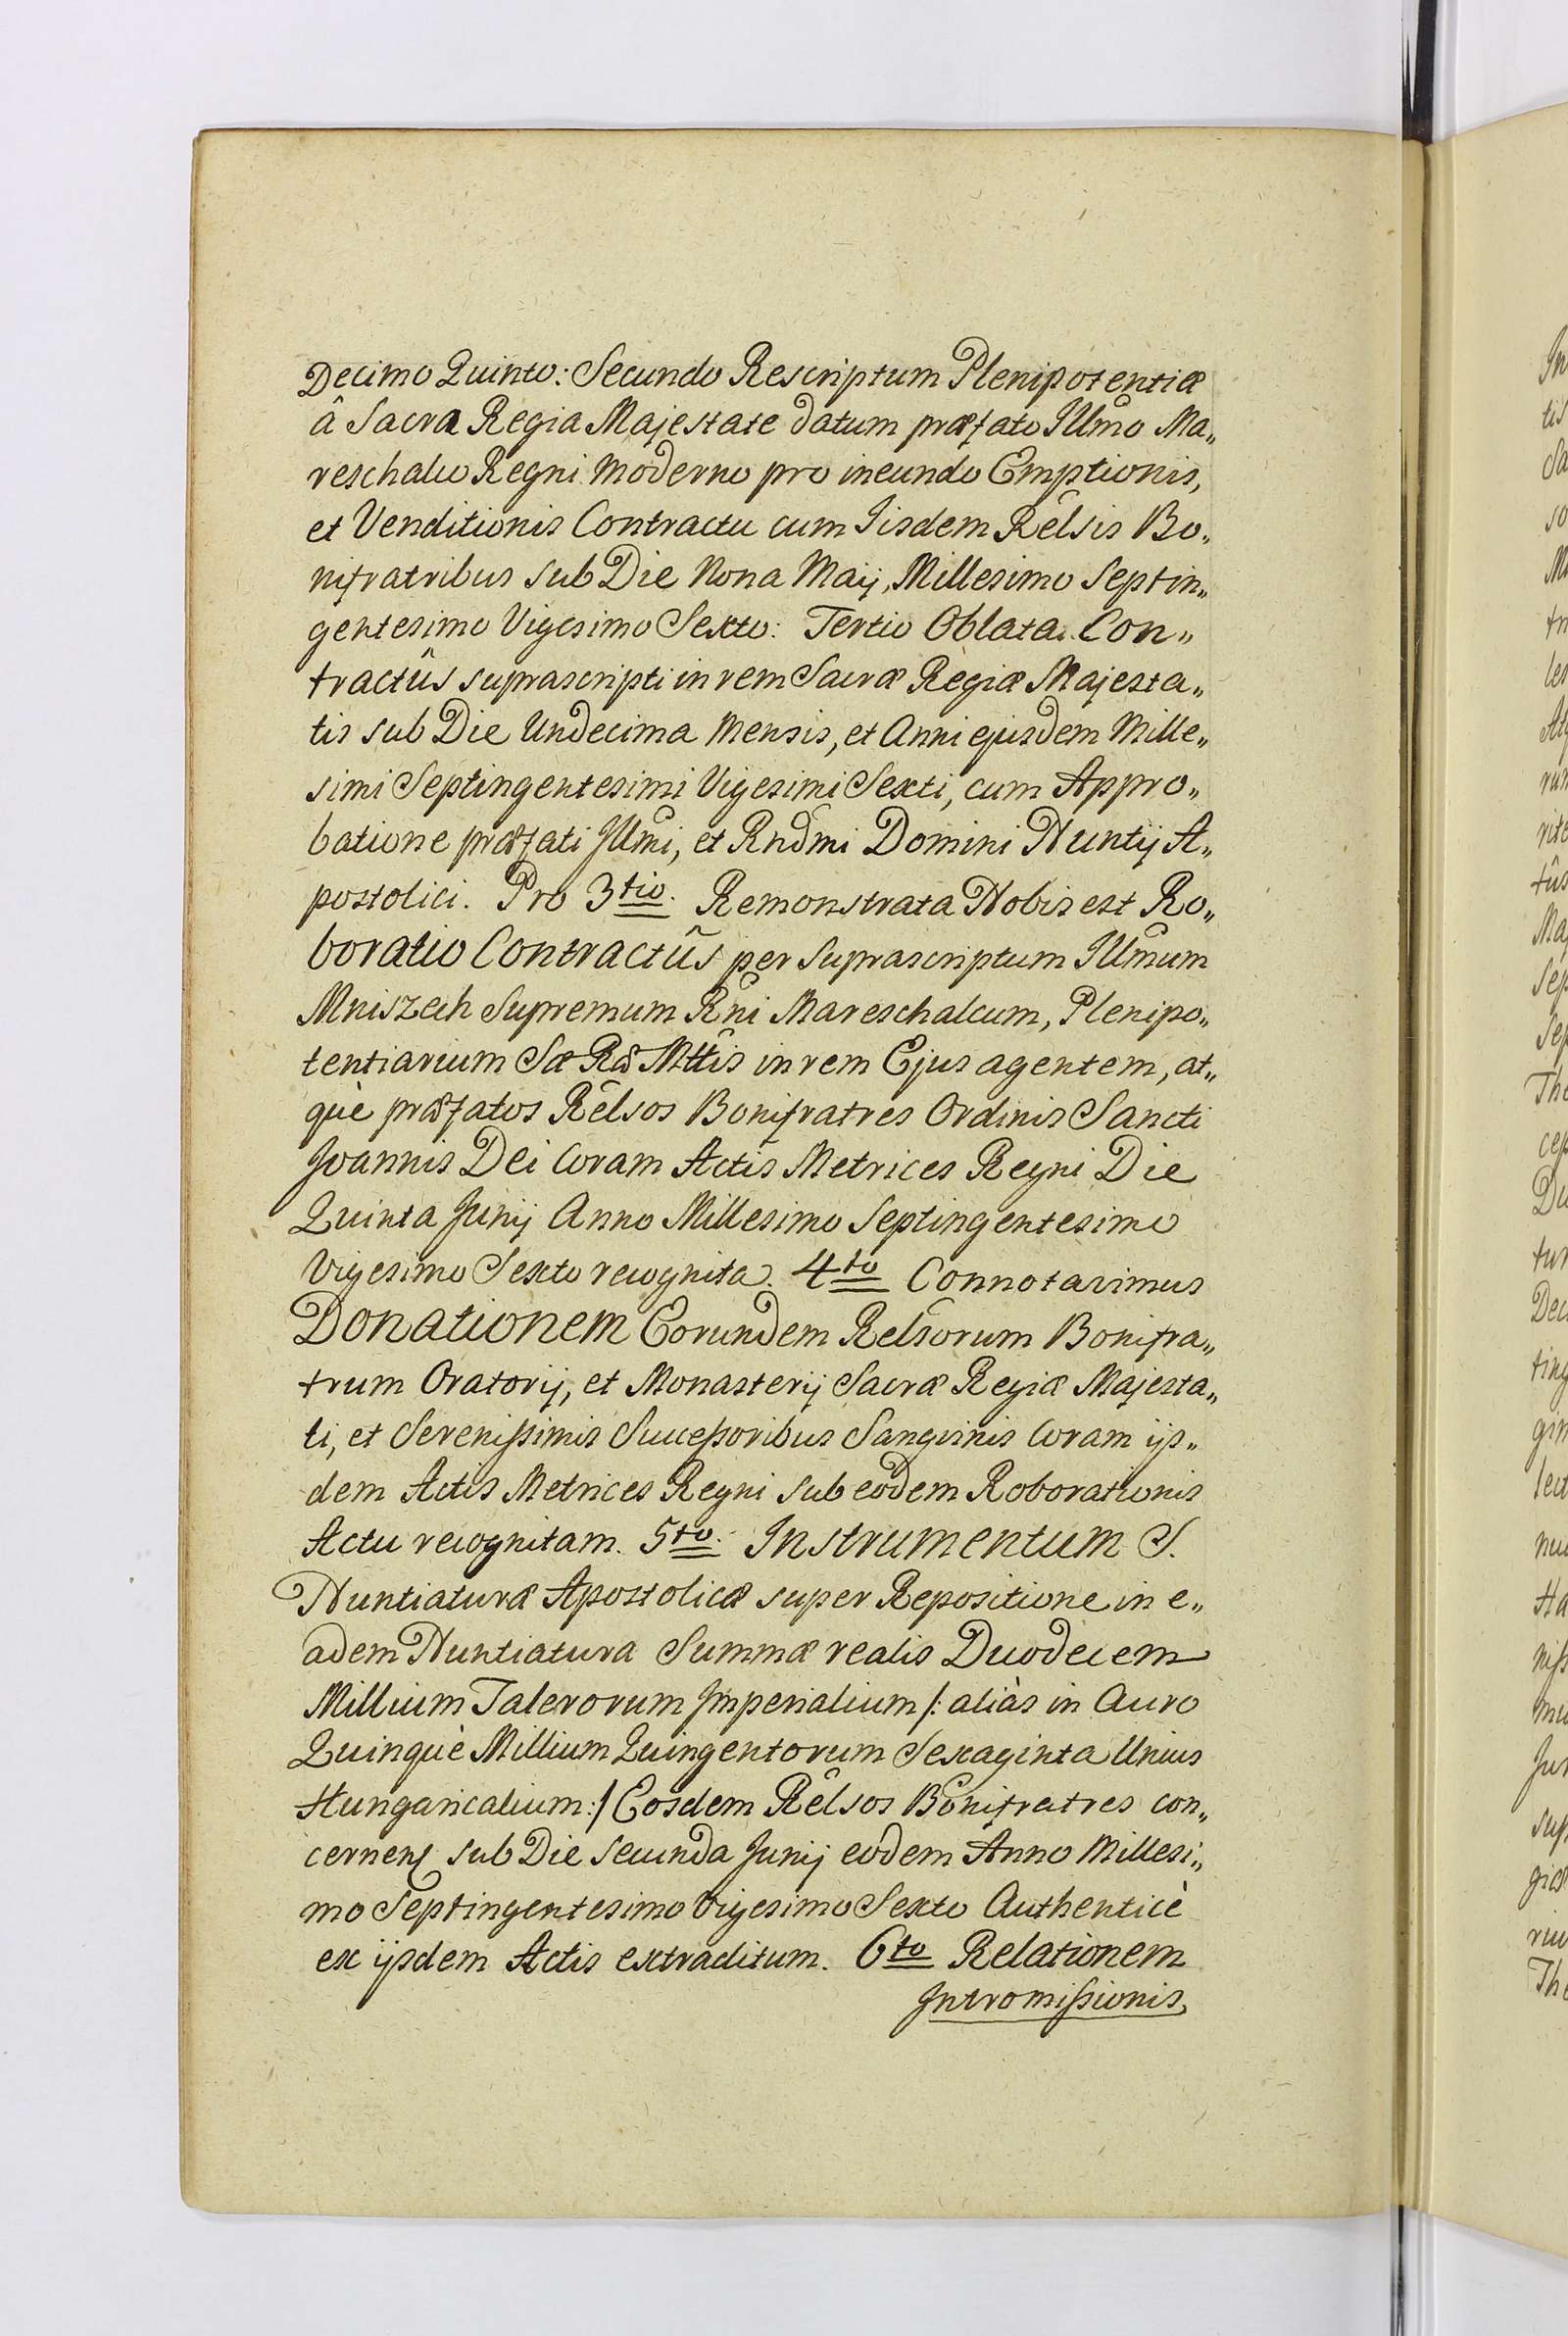 Decimo Quinto: Secundo Rescriptum Plenipotentiæ
â Sacra Regia Majestate datum præfato Illmo Ma„
reschalco Regni moderno pro ineundo Emptionis,
et Venditionis Contractu cum Iisdem Relsis Bo„
nifratribus sub Die Nona Maij, Millesimo Septin„
gentesimo Vigesimo Sexto: Tertio Oblata Con„
tractûs suprascripti in rem Sacræ Regiæ Majesta„
tis sub Die Undecima Mensis, et Anni ejusdem Mille„
simi Septingentesimi Vigesimi Sexti, cum Appro„
batione præfati Illmi, et Rndmi Domini Nuntij A„
postolici. Pro 3tio. Remonstrata Nobis est Ro„
boratio Contractûs per Suprascriptum Illmum
Mniszech Supremum Rni Mareschalcum, Plenipo„
tentiarium Sæ Ræ Mttis in rem Ejus agentem, at„
què præfatos Relsos Bonifratres Ordinis Sancti
Joannis Dei Coram Actis Metrices Regni Die
Quinta Junij Anno Millesimo Septingentesimo
Vigesimo Sexto recognita. 4to Connotavimus
Donationem Eorundem Relsorum Bonifra„
trum Oratorij, et Monasterij Sacræ Regiæ Majesta„
ti, et Serenissimis Successoribus Sangvinis Coram ijs„
dem Actis Metrices Regni sub eodem Roborationis
Actu recognitam. 5to. Instrumentum S.
Nuntiaturæ Apostolicæ super Repositione in e„
adem Nuntiatura Summæ realis Duodecem
Millium Talerorum Imperialium /: aliàs in Auro
Quinquè Millium Quingentorum Sexaginta Unius
Hungaricalium :/ Eosdem Relsos Bonifratres con„
cernens sub Die Secunda Junij eodem Anno Millesi„
mo Septingentesimo Vigesimo Sexto Authenticè
ex ijsdem Actis extraditum. 6to Relationem
Intromissionis,